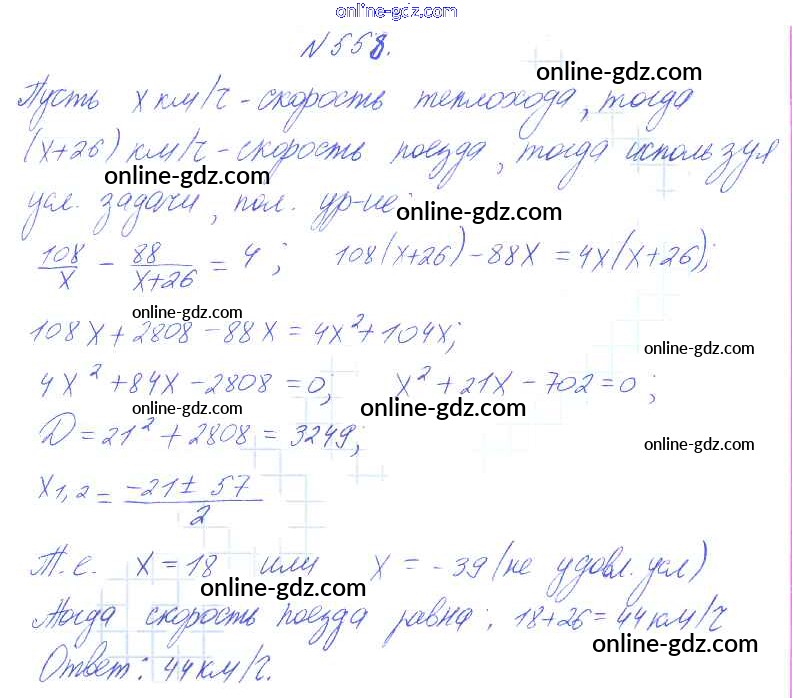 online-gdz.com
N 558.
online-gdz.com
Пусть x км/ч - скорость теплохода, тогда
(x+26) км/ч - скорость поезда, тогда используя
online-gdz.com
усл. задачи, пол. ур-ие:
online-gdz.com
108/x - 88/(x+26) = 4; 108(x+26) - 88x = 4x(x+26);
online-gdz.com
108x + 2808 - 88x = 4x² + 104x;
online-gdz.com
4x² + 84x - 2808 = 0; x² + 21x - 702 = 0;
online-gdz.com
online-gdz.com
D = 21² + 2808 = 3249;
online-gdz.com
x1,2 = (-21 ± 57)/2
Т.е. x = 18 или x = -39 (не удовл. усл)
online-gdz.com
Тогда скорость поезда равна: 18+26 = 44 км/ч
online-gdz.com
Ответ: 44 км/ч.
online-gdz.com